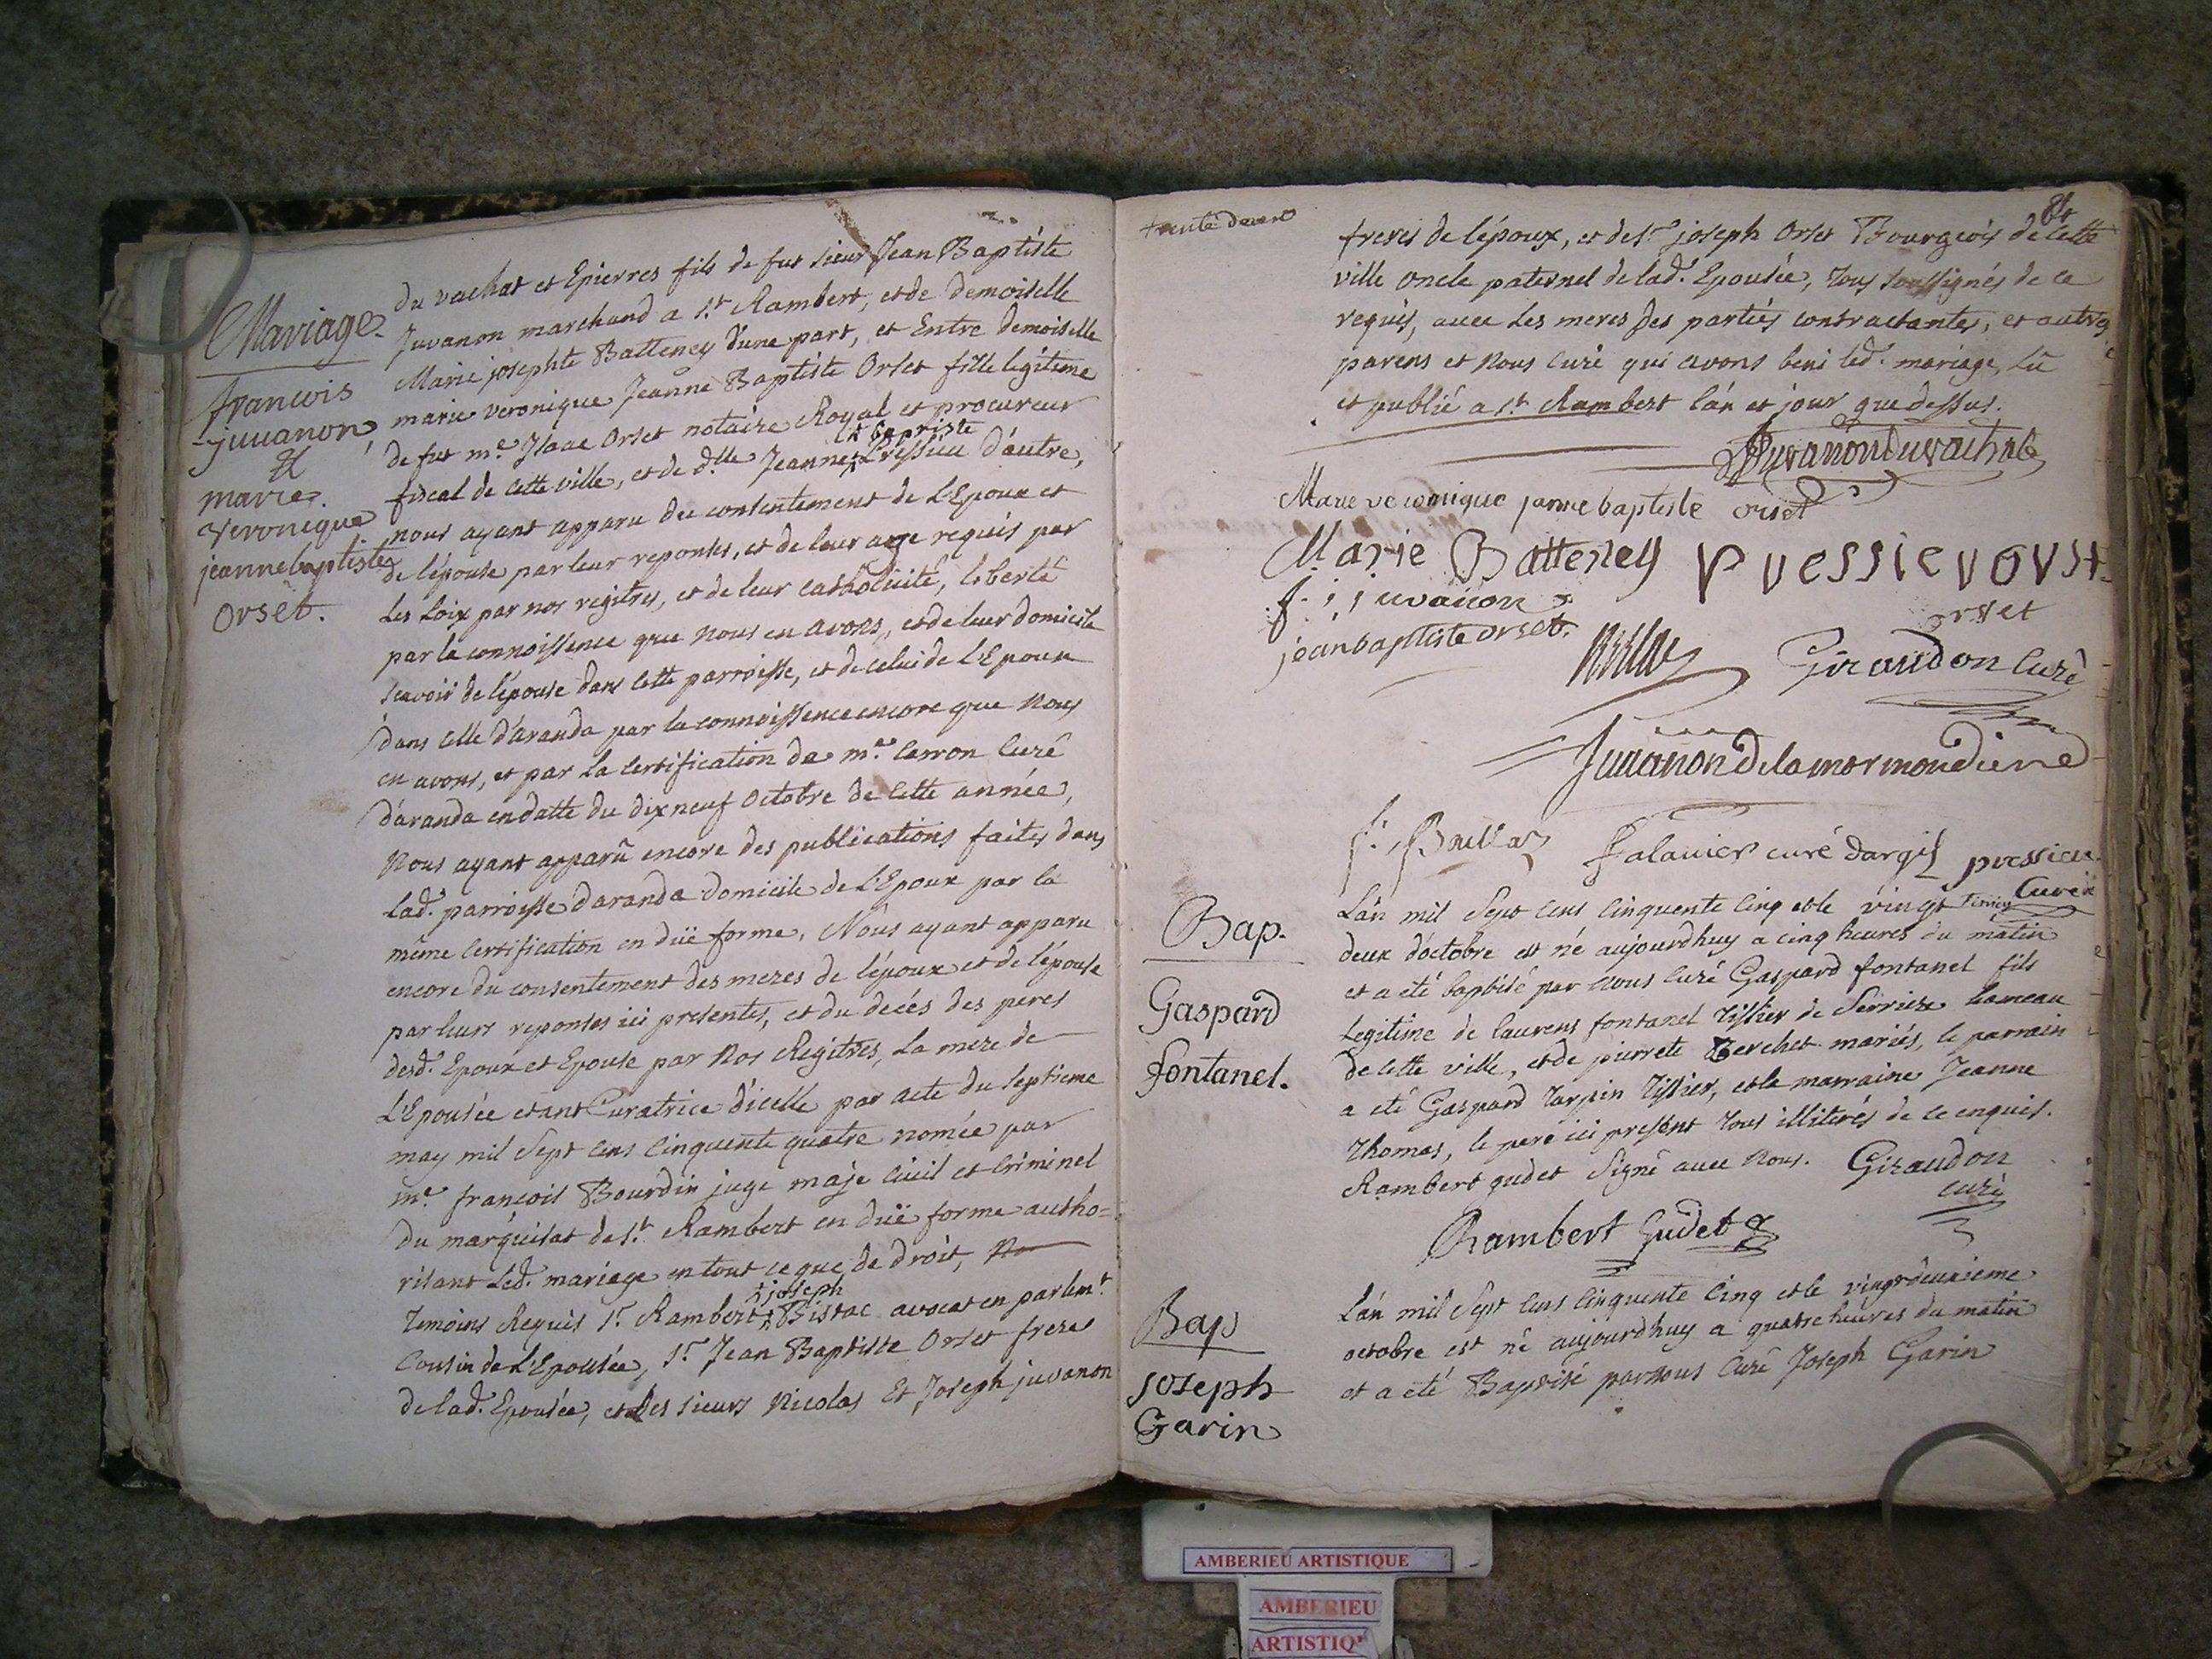 Mariage
francois
juvanon
&
marie
veronique
jeannebaptiste
orset.
du vachat et Epierres fils de fut sieur Jean Baptiste
Juvanon marchand a St. Rambert, et de demoiselle
Marie josephte Batteney d'une part, et Entre demoiselle
marie veronique Jeanne Baptiste Orset fille legitime
de fut me. Isaac Orset notaire Royal et procureur
+ baptiste
fiscal de cette ville, et de dlle Jeanne + Pressieu d'autre,
nous ayant apparu du consentement de L'Epoux et
de l'épouse par leur reponses, et de leur age requis par
les Loix par nos registres, et de leur catholicité, liberté
par la connoissence que nous en avons, et de leur domicile
scavoir de l'épouse dans cette parroisse, et de celui de L'Epoux
dans celle d'aranda par la connoissence encore que nous
en avons, et par la certification de mre. Carron Curé
d'aranda en datte du dixneuf octobre de cette année,
Nous ayant apparû encore des publications faites dans
lad. parroisse d'aranda domicile de L'Epoux par la
même certification en düe forme, Nous ayant apparu
encore du consentement des meres de l'époux et de l'épouse
par leurs reponses ici presentes, et du decés des peres
desd. Epoux et Epouse par Nos Registres, La mere de
L'Epousée etant Curatrice d'icelle par acte du septieme
may mil Sept cens cinquente quatre nomée par
me. francois Bourdin juge maje civil et criminel
du marquisat de St. Rambert en düe forme autho=
risant led. mariage en tout ce que de droit,
+ joseph
temoins Requis Sr. Rambert + Bistac avocat en parlemt.
Cousin de L'Epousée, Sr. Jean Baptiste Orset frere
de lad. Epousée, et des sieurs Nicolas Et Joseph juvanon
trente deux
84
freres de l'époux, et de Sr. joseph Orset Bourgeois de cette
ville oncle paternel de lad. Epousée, tous soussignés de ce
requis, avec les meres des parties contractantes, et autres
parens et nous curé qui avons beni led. mariage, Lû
et publié a St. Rambert l'an et jour que dessus.
Juvanon du vachat
Marie veronique janne baptiste orset
Marie Batteney pressie
f. j juvanon
orset
jean baptiste orset.
Giraudon Curé
Juvanon de la mormondiere
Palavier curé dargis pressieu
Curé
Bap.
Gaspard
fontanel.
L'an mil Sept cens cinquente cinq et le vingt
deux d'octobre est né aujourdhuy a cinq heures du matin
et a eté baptisé par nous Curé Gaspard fontanel fils
Legitime de laurens fontanel tissier de Serrieze hameau
de cette ville, et de pierrete Berchet mariés, le parrain
a eté Gaspard tarpin tissier, et la marraine Jeanne
thomas, le pere ici present tous illiterés de ce enquis.
Rambert gudet Signé avec nous. Giraudon
curé
Rambert Gudet
Bap
joseph
Garin
L'an mil Sept cens cinquente cinq et le vingt deuxieme
octobre est né aujourdhuy a quatre heures du matin
et a eté Baptisé par nous Curé Joseph Garin
AMBERIEU ARTISTIQUE
AMBERIEU
ARTISTIQ